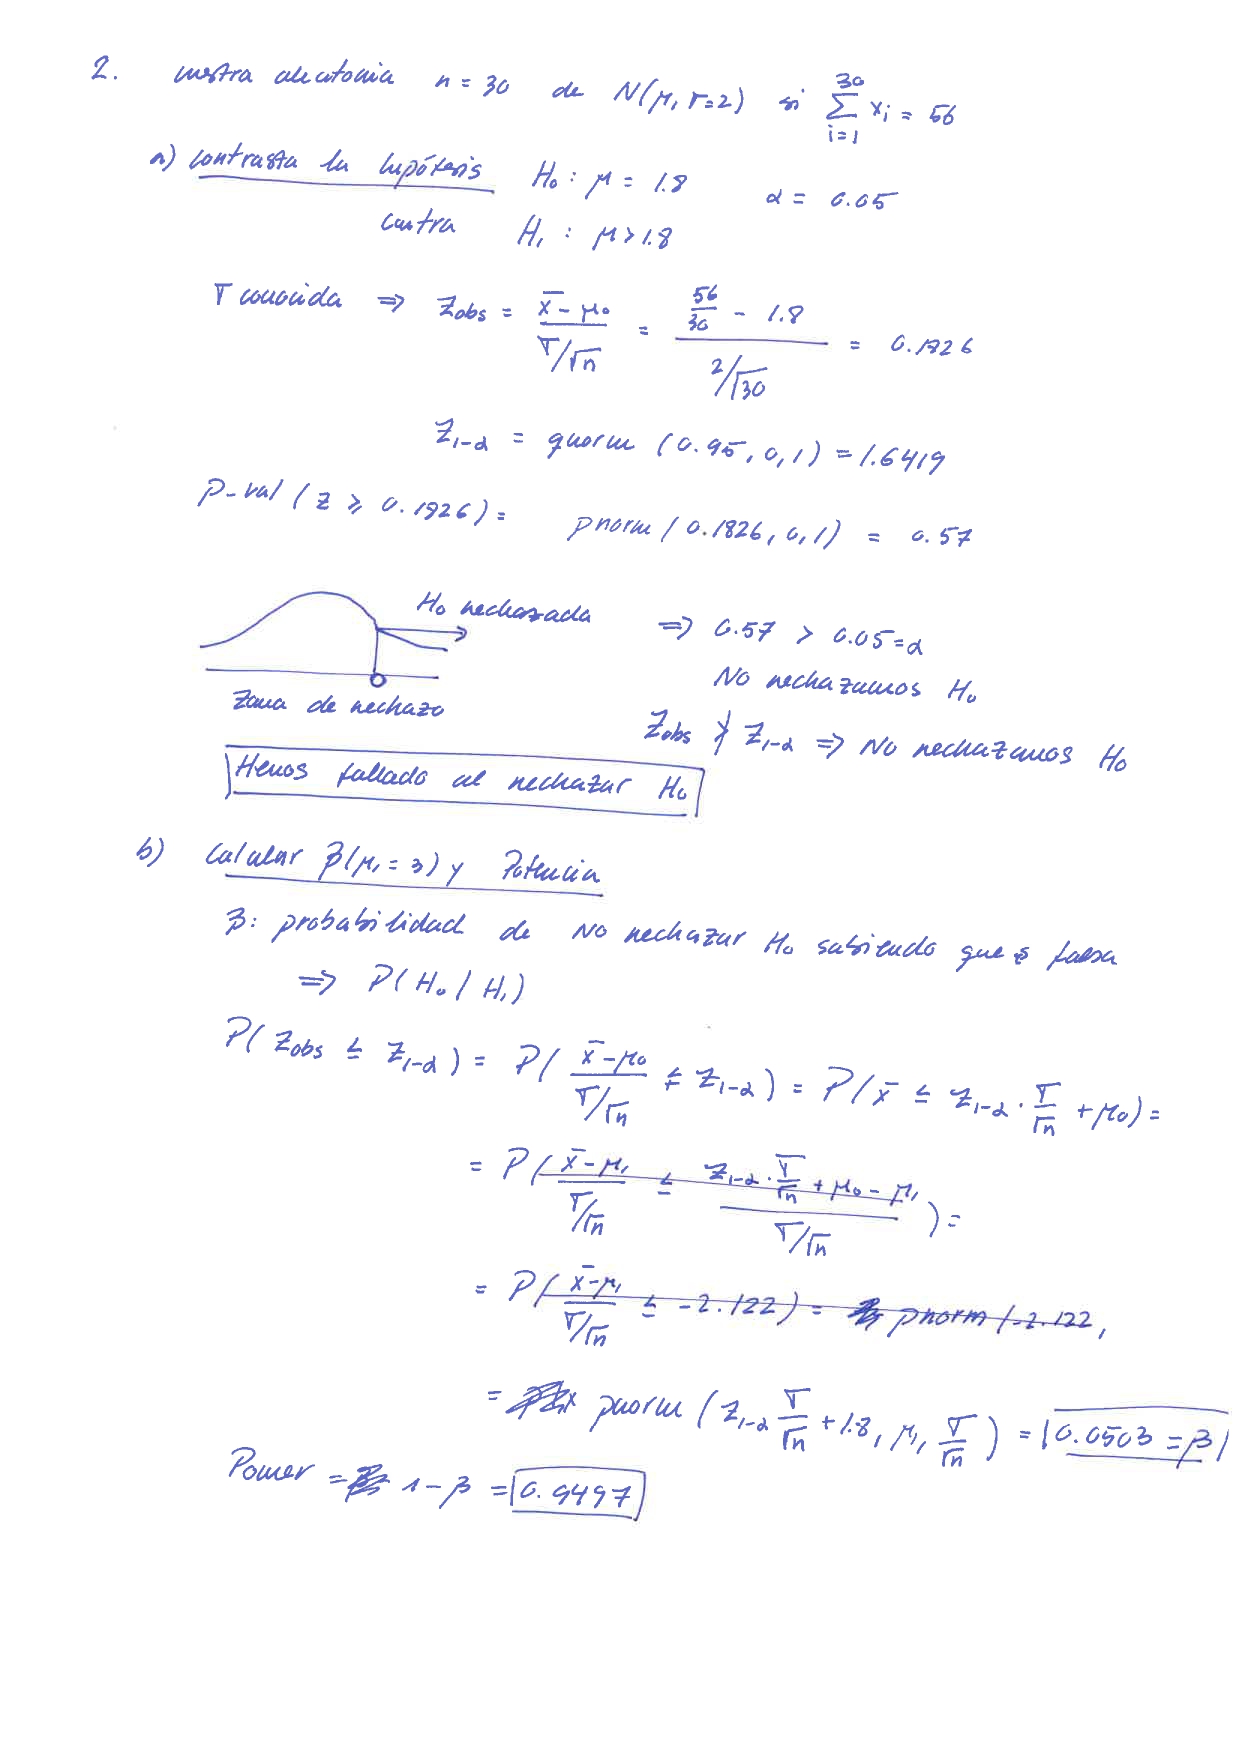 2. mestra aleatoria n = 30 de N(μ, σ=2) si \sum_{i=1}^{30} x_i = 56
a) Contrasta la hipótesis H₀ : μ = 1.8 α = 0.05
contra H₁ : μ > 1.8
σ conocida ⇒ Z_obs = (x̄ - μ₀)/(σ/√n) = (56/30 - 1.8)/(2/√30) = 0.1826
Z_{1-α} = qnorm (0.95, 0, 1) = 1.6419
P-val (Z ≥ 0.1826) = pnorm (0.1826, 0, 1) = 0.57
H₀ rechazada ⇒ 0.57 > 0.05 = α
No rechazamos H₀
Zona de rechazo
Z_obs ≯ Z_{1-α} ⇒ No rechazamos H₀
Hemos fallado al rechazar H₀
b) Calcular β(μ₁ = 3) y Potencia
β: probabilidad de No rechazar H₀ sabiendo que es falsa
⇒ P(H₀ / H₁)
P( Z_obs ≤ Z_{1-α} ) = P( (x̄ - μ₀)/(σ/√n) ≤ Z_{1-α} ) = P( x̄ ≤ Z_{1-α} · σ/√n + μ₀ ) =
= P( (x̄ - μ₁)/(σ/√n) ≤ (Z_{1-α} · σ/√n + μ₀ - μ₁)/(σ/√n) ) =
= P( (x̄ - μ₁)/(σ/√n) ≤ -2.122 ) = pnorm (-2.122,
= pnorm ( Z_{1-α} σ/√n + 1.8, μ₁, σ/√n ) = 0.0503 = β
Power = 1 - β = 0.9497